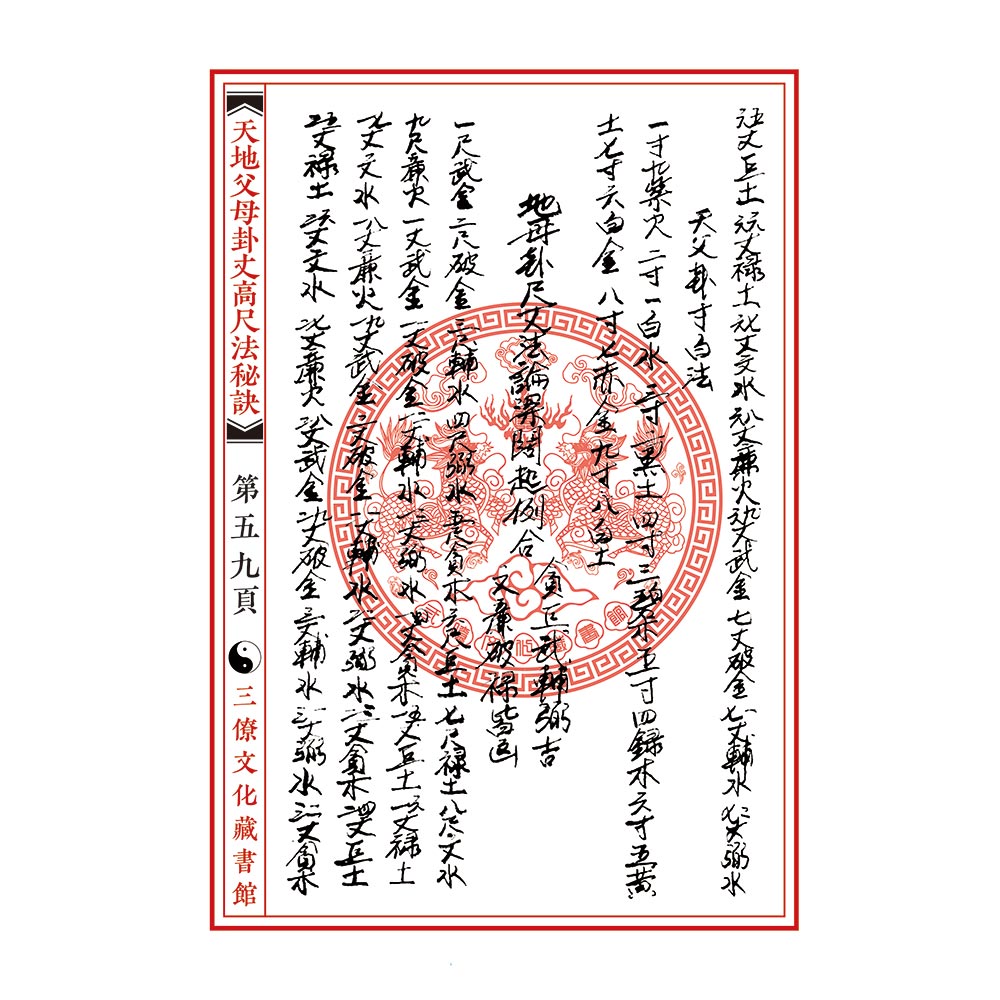 六五丈巨土 六六丈禄土 六七丈文水 六八丈廉火 六九丈武金 七丈破金 七一丈輔水 七二丈弼水
天父卦寸白法
一寸九紫火 二寸一白水 三寸二黑土 四寸三碧木 五寸四録木 六寸五黄
土 七寸六白金 八寸七赤金 九寸八白土
地母卦尺丈法論渠闊起例合
貪巨武輔弼吉
文廉破禄皆凶
一尺武金 二尺破金 三尺輔水 四尺弼水 五尺貪木 六尺巨土 七尺禄土 八尺文水
九尺廉火 一丈武金 一一丈破金 一二丈輔水 一三丈弼水 一四丈貪木 一五丈巨土 一六丈禄土
一七丈文水 一八丈廉火 一九丈武金 二丈破金 二一丈輔水 二二丈弼水 二三丈貪木 二四丈巨土
二五丈禄土 二六丈文水 二七丈廉火 二八丈武金 二九丈破金 三丈輔水 三一丈弼水 三二丈貪木
《天地父母卦丈高尺法秘訣》
第五九頁
三僚文化藏書館